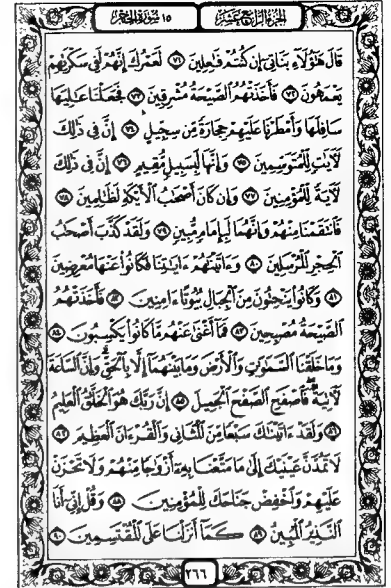 الجزء الرابع عشر
١٥ سورة الحجر
قَالَ هَٰؤُلَاءِ بَنَاتِي إِن كُنتُمْ فَاعِلِينَ ٧١ لَعَمْرُكَ إِنَّهُمْ لَفِي سَكْرَتِهِمْ
يَعْمَهُونَ ٧٢ فَأَخَذَتْهُمُ الصَّيْحَةُ مُشْرِقِينَ ٧٣ فَجَعَلْنَا عَالِيَهَا
سَافِلَهَا وَأَمْطَرْنَا عَلَيْهِمْ حِجَارَةً مِّن سِجِّيلٍ ٧٤ إِنَّ فِي ذَٰلِكَ
لَآيَاتٍ لِّلْمُتَوَسِّمِينَ ٧٥ وَإِنَّهَا لَبِسَبِيلٍ مُّقِيمٍ ٧٦ إِنَّ فِي ذَٰلِكَ
لَآيَةً لِّلْمُؤْمِنِينَ ٧٧ وَإِن كَانَ أَصْحَابُ الْأَيْكَةِ لَظَالِمِينَ ٧٨
فَانتَقَمْنَا مِنْهُمْ وَإِنَّهُمَا لَبِإِمَامٍ مُّبِينٍ ٧٩ وَلَقَدْ كَذَّبَ أَصْحَابُ
الْحِجْرِ الْمُرْسَلِينَ ٨٠ وَءَاتَيْنَاهُمْ ءَايَاتِنَا فَكَانُوا عَنْهَا مُعْرِضِينَ
٨١ وَكَانُوا يَنْحِتُونَ مِنَ الْجِبَالِ بُيُوتًا ءَامِنِينَ ٨٢ فَأَخَذَتْهُمُ
الصَّيْحَةُ مُصْبِحِينَ ٨٣ فَمَا أَغْنَىٰ عَنْهُم مَّا كَانُوا يَكْسِبُونَ ٨٤
وَمَا خَلَقْنَا السَّمَاوَاتِ وَالْأَرْضَ وَمَا بَيْنَهُمَا إِلَّا بِالْحَقِّ ۗ وَإِنَّ السَّاعَةَ
لَآتِيَةٌ ۖ فَاصْفَحِ الصَّفْحَ الْجَمِيلَ ٨٥ إِنَّ رَبَّكَ هُوَ الْخَلَّاقُ الْعَلِيمُ
٨٦ وَلَقَدْ ءَاتَيْنَاكَ سَبْعًا مِّنَ الْمَثَانِي وَالْقُرْءَانَ الْعَظِيمَ ٨٧
لَا تَمُدَّنَّ عَيْنَيْكَ إِلَىٰ مَا مَتَّعْنَا بِهِ أَزْوَاجًا مِّنْهُمْ وَلَا تَحْزَنْ
عَلَيْهِمْ وَاخْفِضْ جَنَاحَكَ لِلْمُؤْمِنِينَ ٨٨ وَقُلْ إِنِّي أَنَا
النَّذِيرُ الْمُبِينُ ٨٩ كَمَا أَنزَلْنَا عَلَى الْمُقْتَسِمِينَ ٩٠
٢٦٦